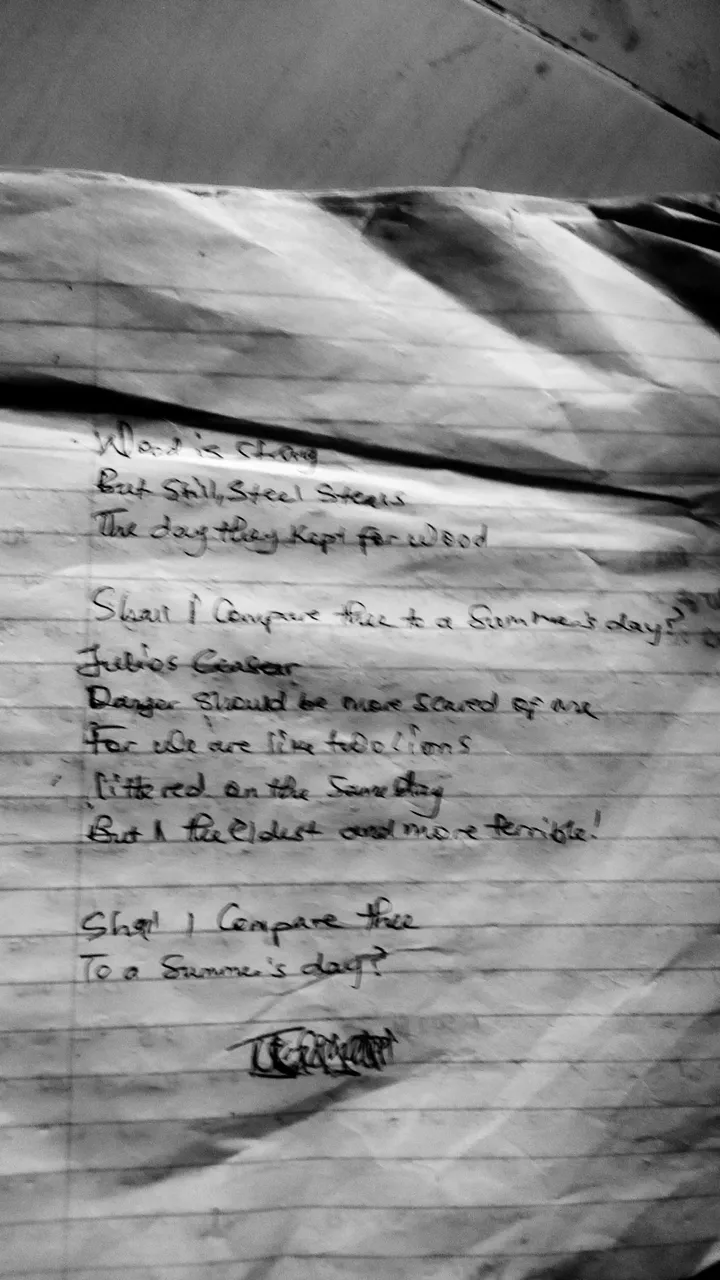 Wood is strong
But Still, Steel Steals
The day they Kept for wood
Shall I Compare thee to a Summer's day?
Julios Ceaser
Danger should be more scared of me
For we are like two lions
littered on the Same day
But I the eldest and more terrible!
Shall I Compare thee
To a Summer's day?